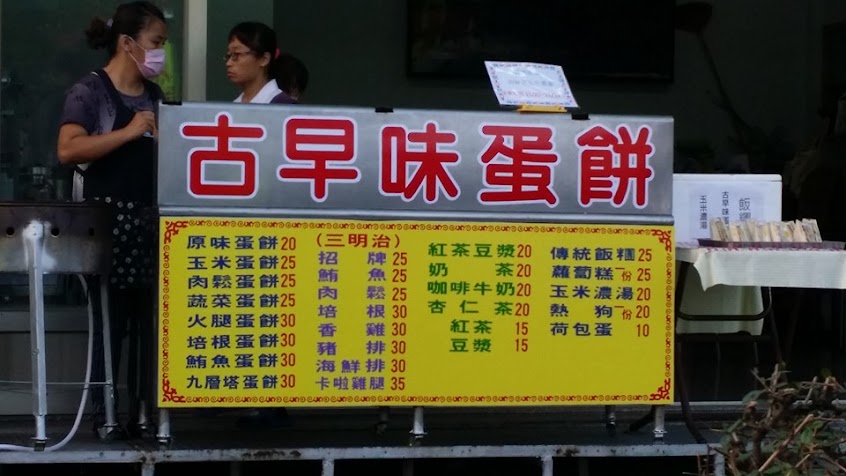 古早味蛋餅
原味蛋餅20
玉米蛋餅25
肉鬆蛋餅25
蔬菜蛋餅25
火腿蛋餅30
培根蛋餅30
鮪魚蛋餅30
九層塔蛋餅30
(三明治)
招牌25
鮪魚25
肉鬆25
培根30
香雞30
豬排30
海鮮排30
卡啦雞腿35
紅茶豆漿20
奶茶20
咖啡牛奶20
杏仁茶20
紅茶15
豆漿15
傳統飯糰25
蘿蔔糕一份25
玉米濃湯20
熱狗一份20
荷包蛋10
飯糰
古早味蛋
玉米濃湯